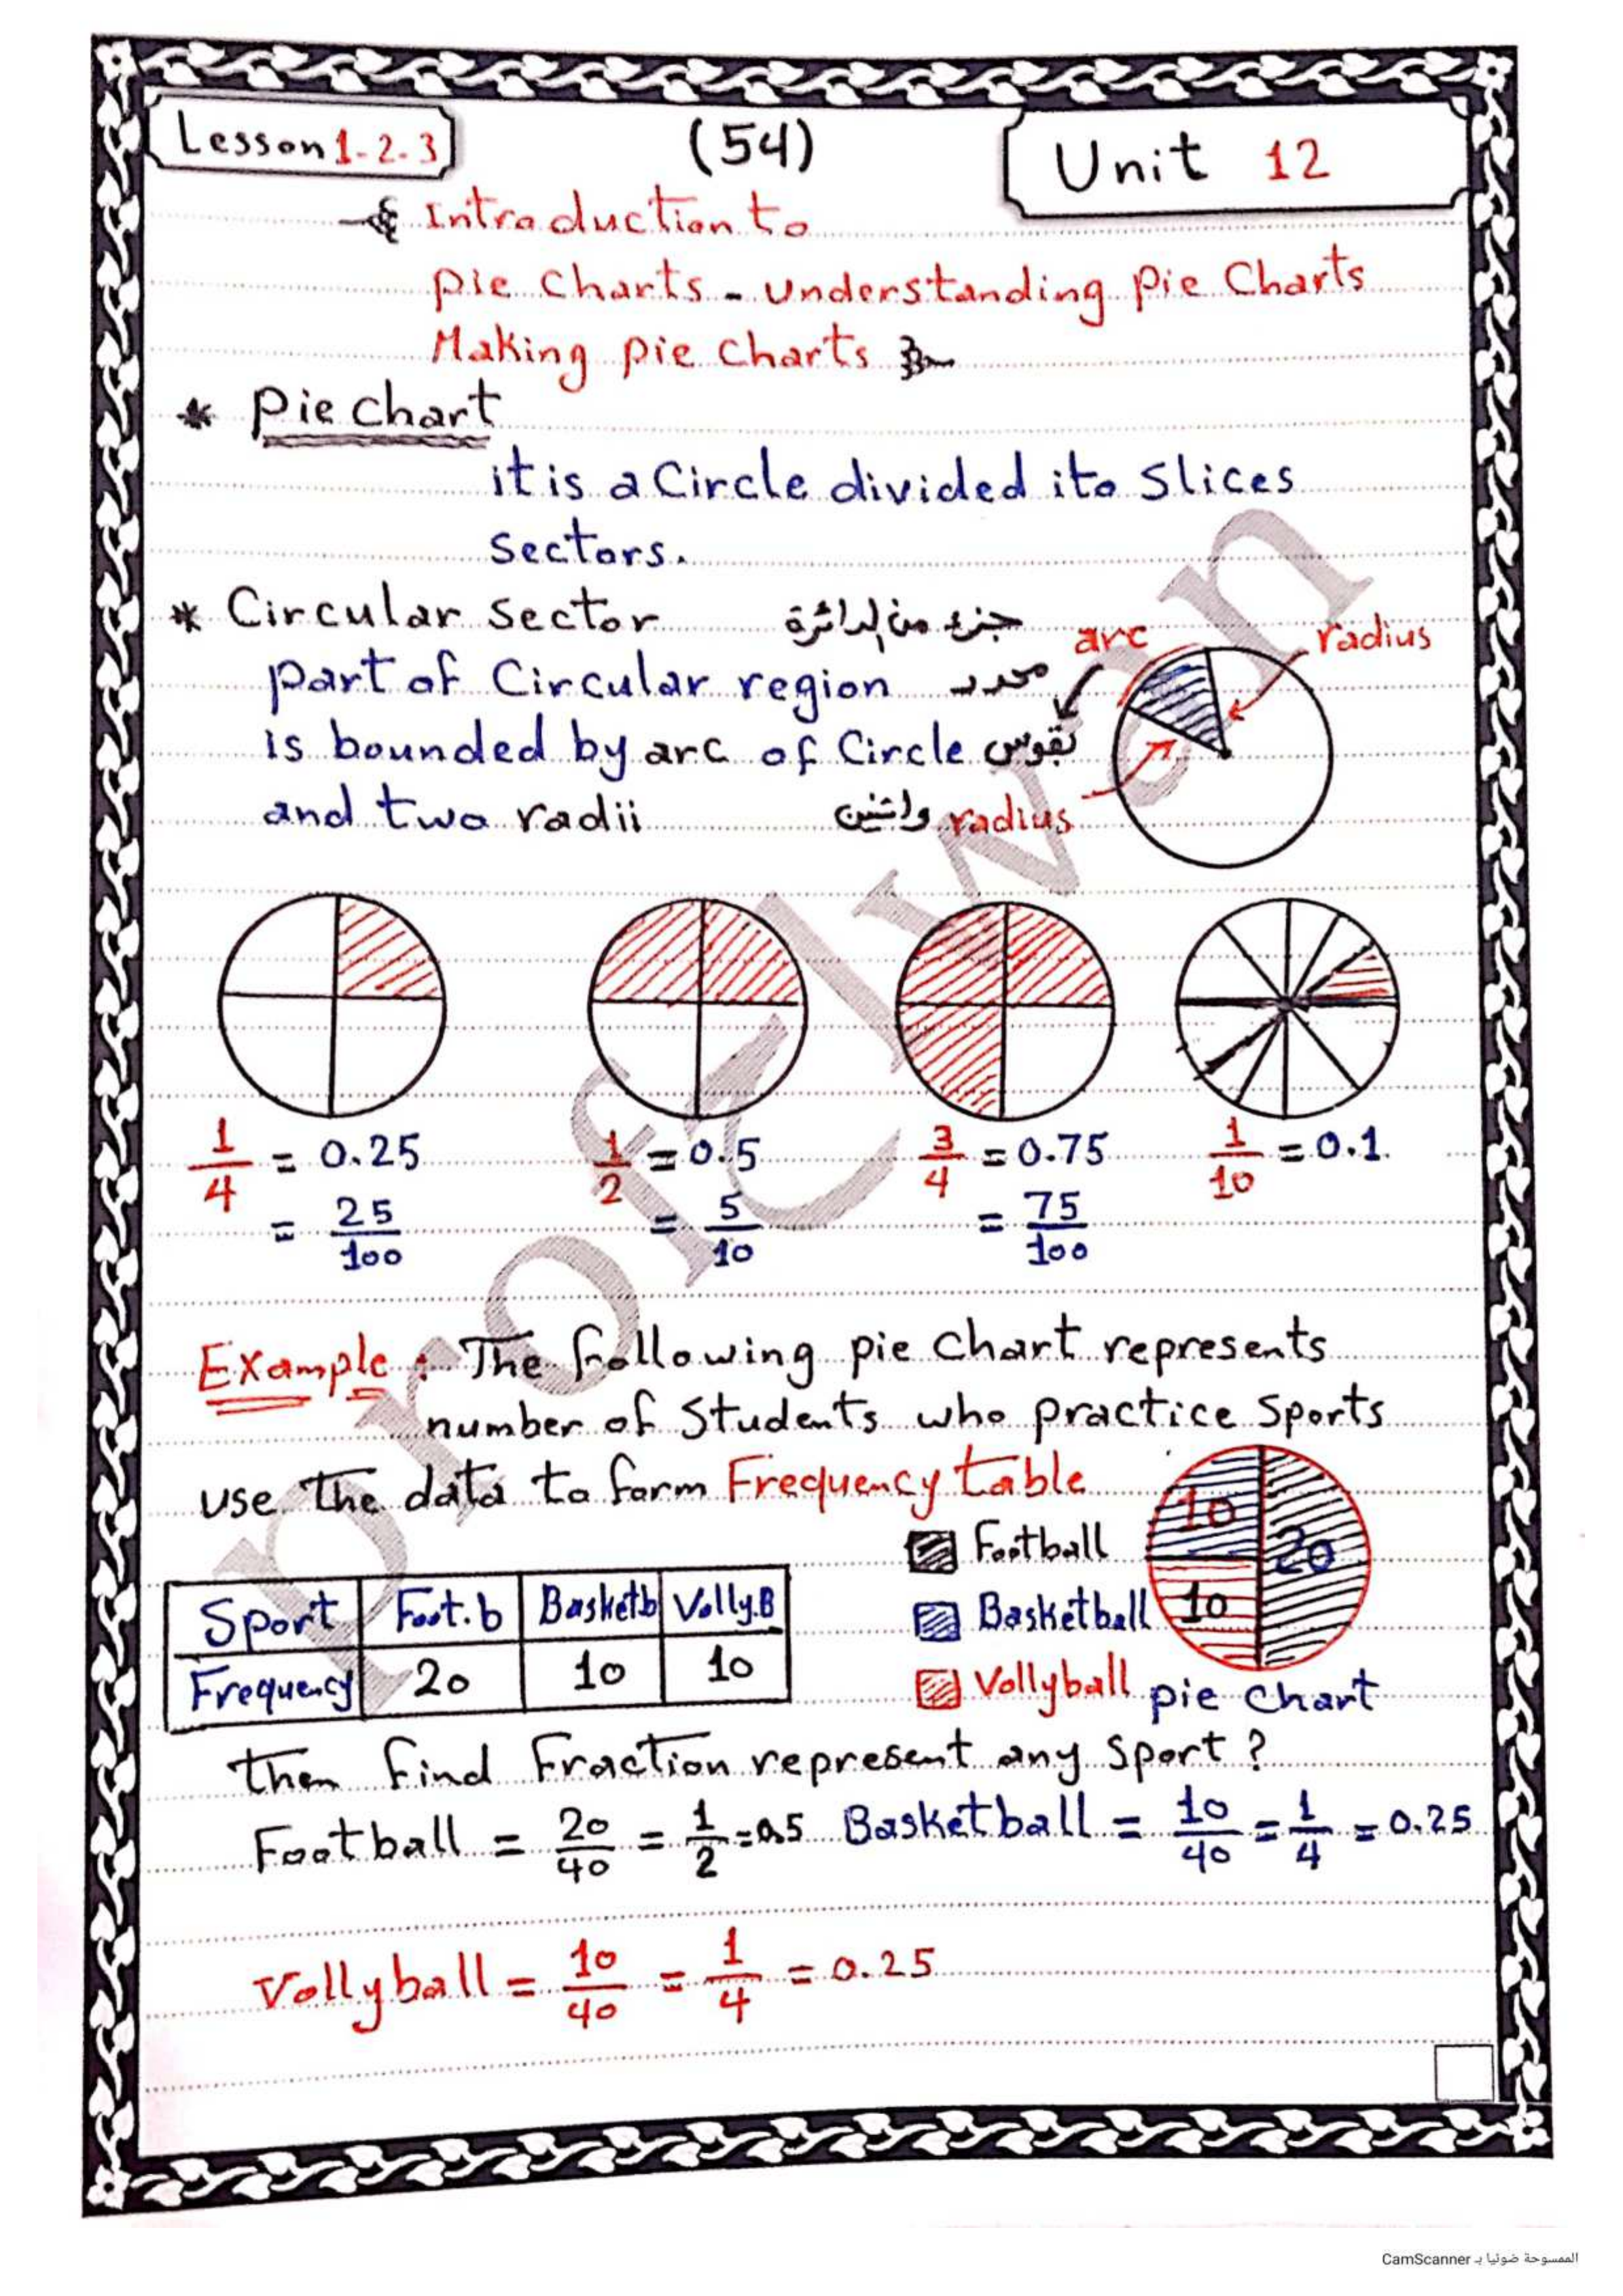 Lesson 1-2-3
(54)
Unit 12
Introduction to
Pie Charts - Understanding Pie Charts
Making Pie Charts
* Pie chart
it is a Circle divided ito Slices
Sectors.
* Circular Sector جزء من الدائرة
part of Circular region محدد
is bounded by arc of Circle بقوس
and two radii
arc
radius
radius
1/4 = 0.25
= 25/100
1/2 = 0.5
= 5/10
3/4 = 0.75
= 75/100
1/10 = 0.1
Example : The following pie chart represents
number of Students who practice Sports
use the data to form Frequency table
10
20
10
Football
Basketball
Vollyball
pie chart
Sport Foot.b Basketb Volly.B
Frequency 20 10 10
then find Fraction represent any Sport ?
Football = 20/40 = 1/2 = 0.5 Basketball = 10/40 = 1/4 = 0.25
Vollyball = 10/40 = 1/4 = 0.25
الممسوحة ضوئيا بـ CamScanner